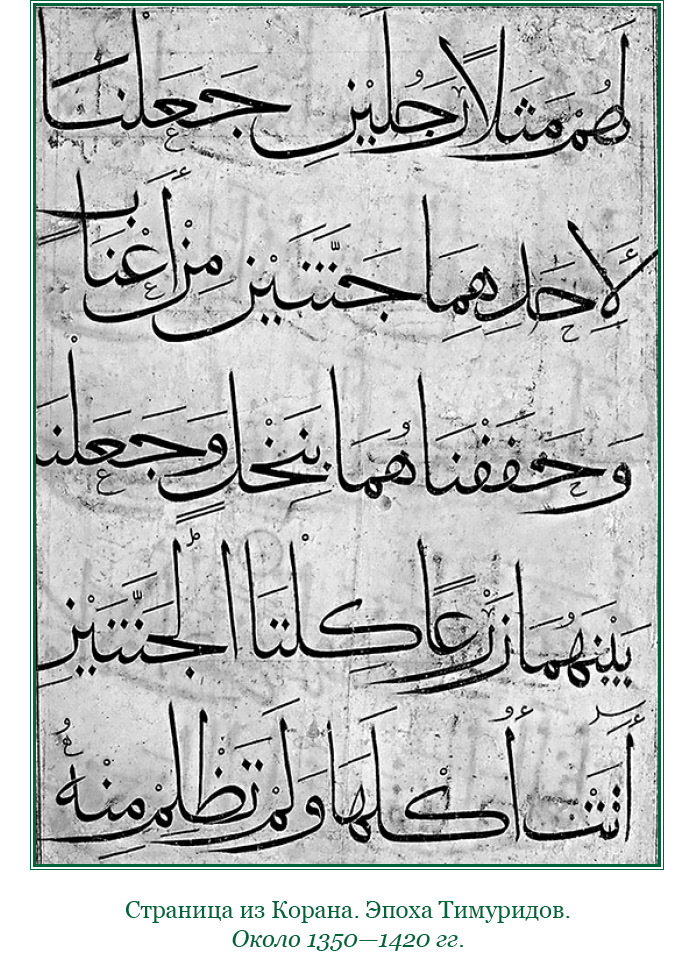 لَهُمْ مَثَلًا رَجُلَيْنِ جَعَلْنَا
لِأَحَدِهِمَا جَنَّتَيْنِ مِنْ أَعْنَابٍ
وَحَفَفْنَاهُمَا بِنَخْلٍ وَجَعَلْنَا
بَيْنَهُمَا زَرْعًا كِلْتَا الْجَنَّتَيْنِ
أٰتَتْ أُكُلَهَا وَلَمْ تَظْلِمْ مِنْهُ
Страница из Корана. Эпоха Тимуридов.
Около 1350—1420 гг.